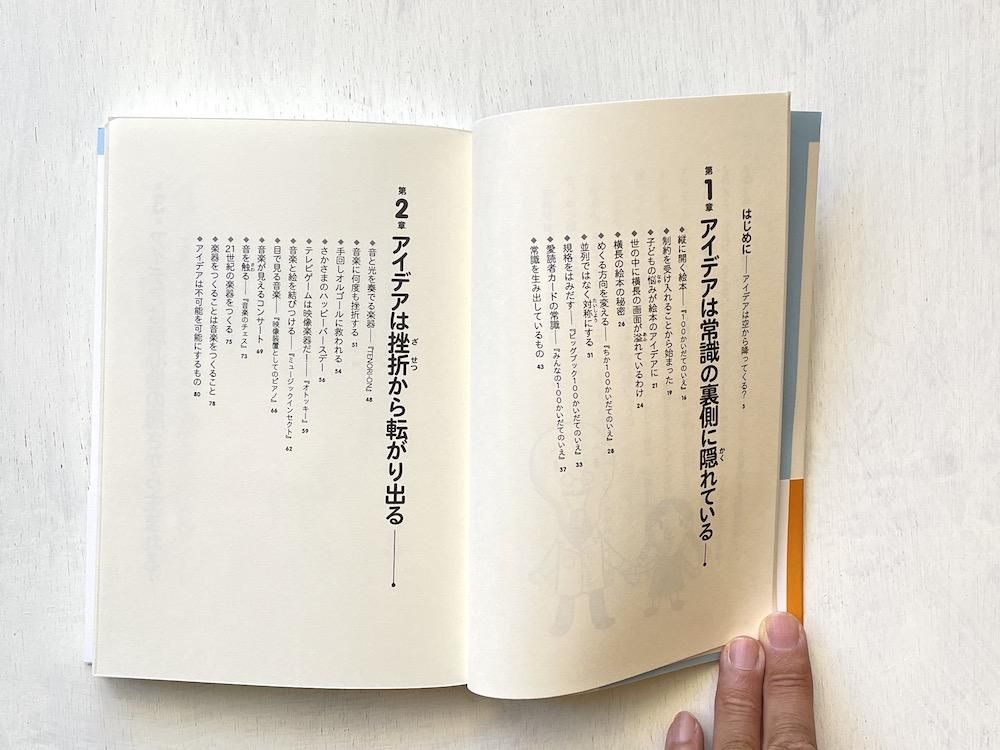 はじめに――アイデアは空から降ってくる? 3
第1章 アイデアは常識の裏側に隠れている
かく
◆縦に開く絵本――『100かいだてのいえ』 16
◆制約を受け入れることから始まった 19
◆子どもの悩みが絵本のアイデアに 21
なや
◆世の中に横長の画面が溢れているわけ 24
あふ
◆横長の絵本の秘密 26
◆めくる方向を変える――『ちか100かいだてのいえ』 28
◆並列ではなく対称にする 31
たいしょう
◆規格をはみだす――『ビッグブック100かいだてのいえ』 33
◆愛読者カードの常識――『みんなの100かいだてのいえ』 37
◆常識を生み出しているもの 43
第2章 アイデアは挫折から転がり出る
ざせつ
◆音と光を奏でる楽器――『TENORI-ON』 48
◆音楽に何度も挫折する 51
◆手回しオルゴールに救われる 54
◆さかさまのハッピーバースデー 56
◆テレビゲームは映像楽器だ――『オトッキー』 59
◆音楽と絵を結びつける――『ミュージックインセクト』 62
◆目で見る音楽――『映像装置としてのピアノ』 66
◆音楽が見えるコンサート 69
◆音を触る――『音楽のチェス』 73
さわ
◆21世紀の楽器をつくる 75
◆楽器をつくることは音楽をつくること 78
◆アイデアは不可能を可能にするもの 80